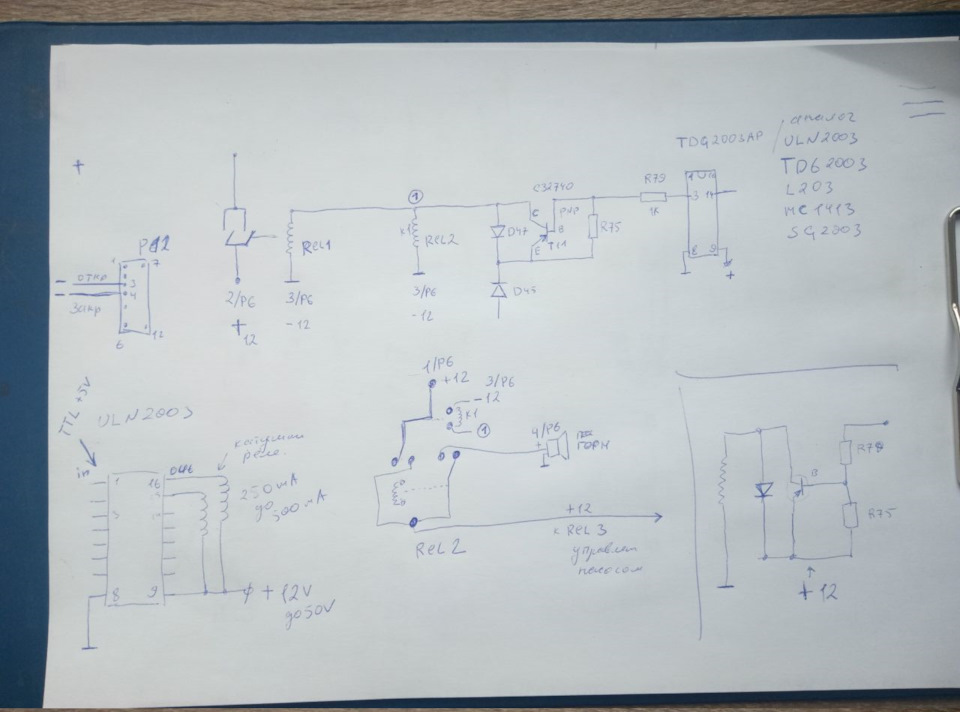 +
TDG2003AP
/ аналог
ULN2003
TD62003
L203
MC1413
SG2003
1
7
откр
3
4
Закр
6
12
2/P6
+
12
Rel1
3/P6
-12
1
к1
Rel2
3/P6
-12
D47
C32740
C
PNP
B
E
R75
D45
R79
1K
1
3
14
8
9
+
TTL +5V
ULN2003
in
1
16
8
9
катушки
реле.
250mA
до
500mA
+12V
до50V
1/P6
+12
3/P6
-12
к1
1
4/P6
+
ГОРН
Rel 2
+12
к Rel 3
B
R79
R75
+12